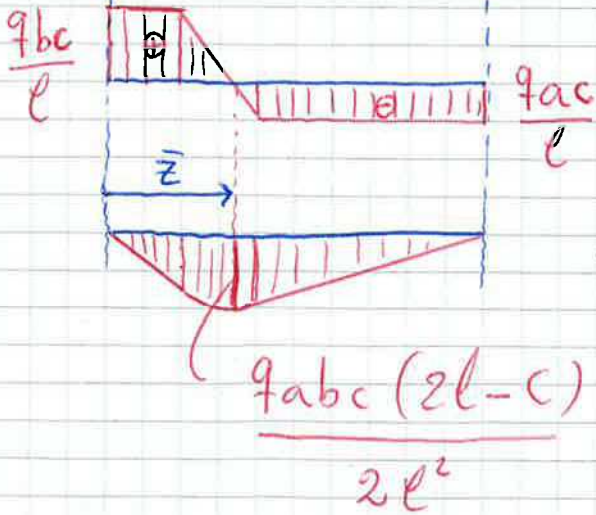 qbc
ℓ
⊕
⊖
qac
ℓ
z̄
qabc (2ℓ-c)
2ℓ²